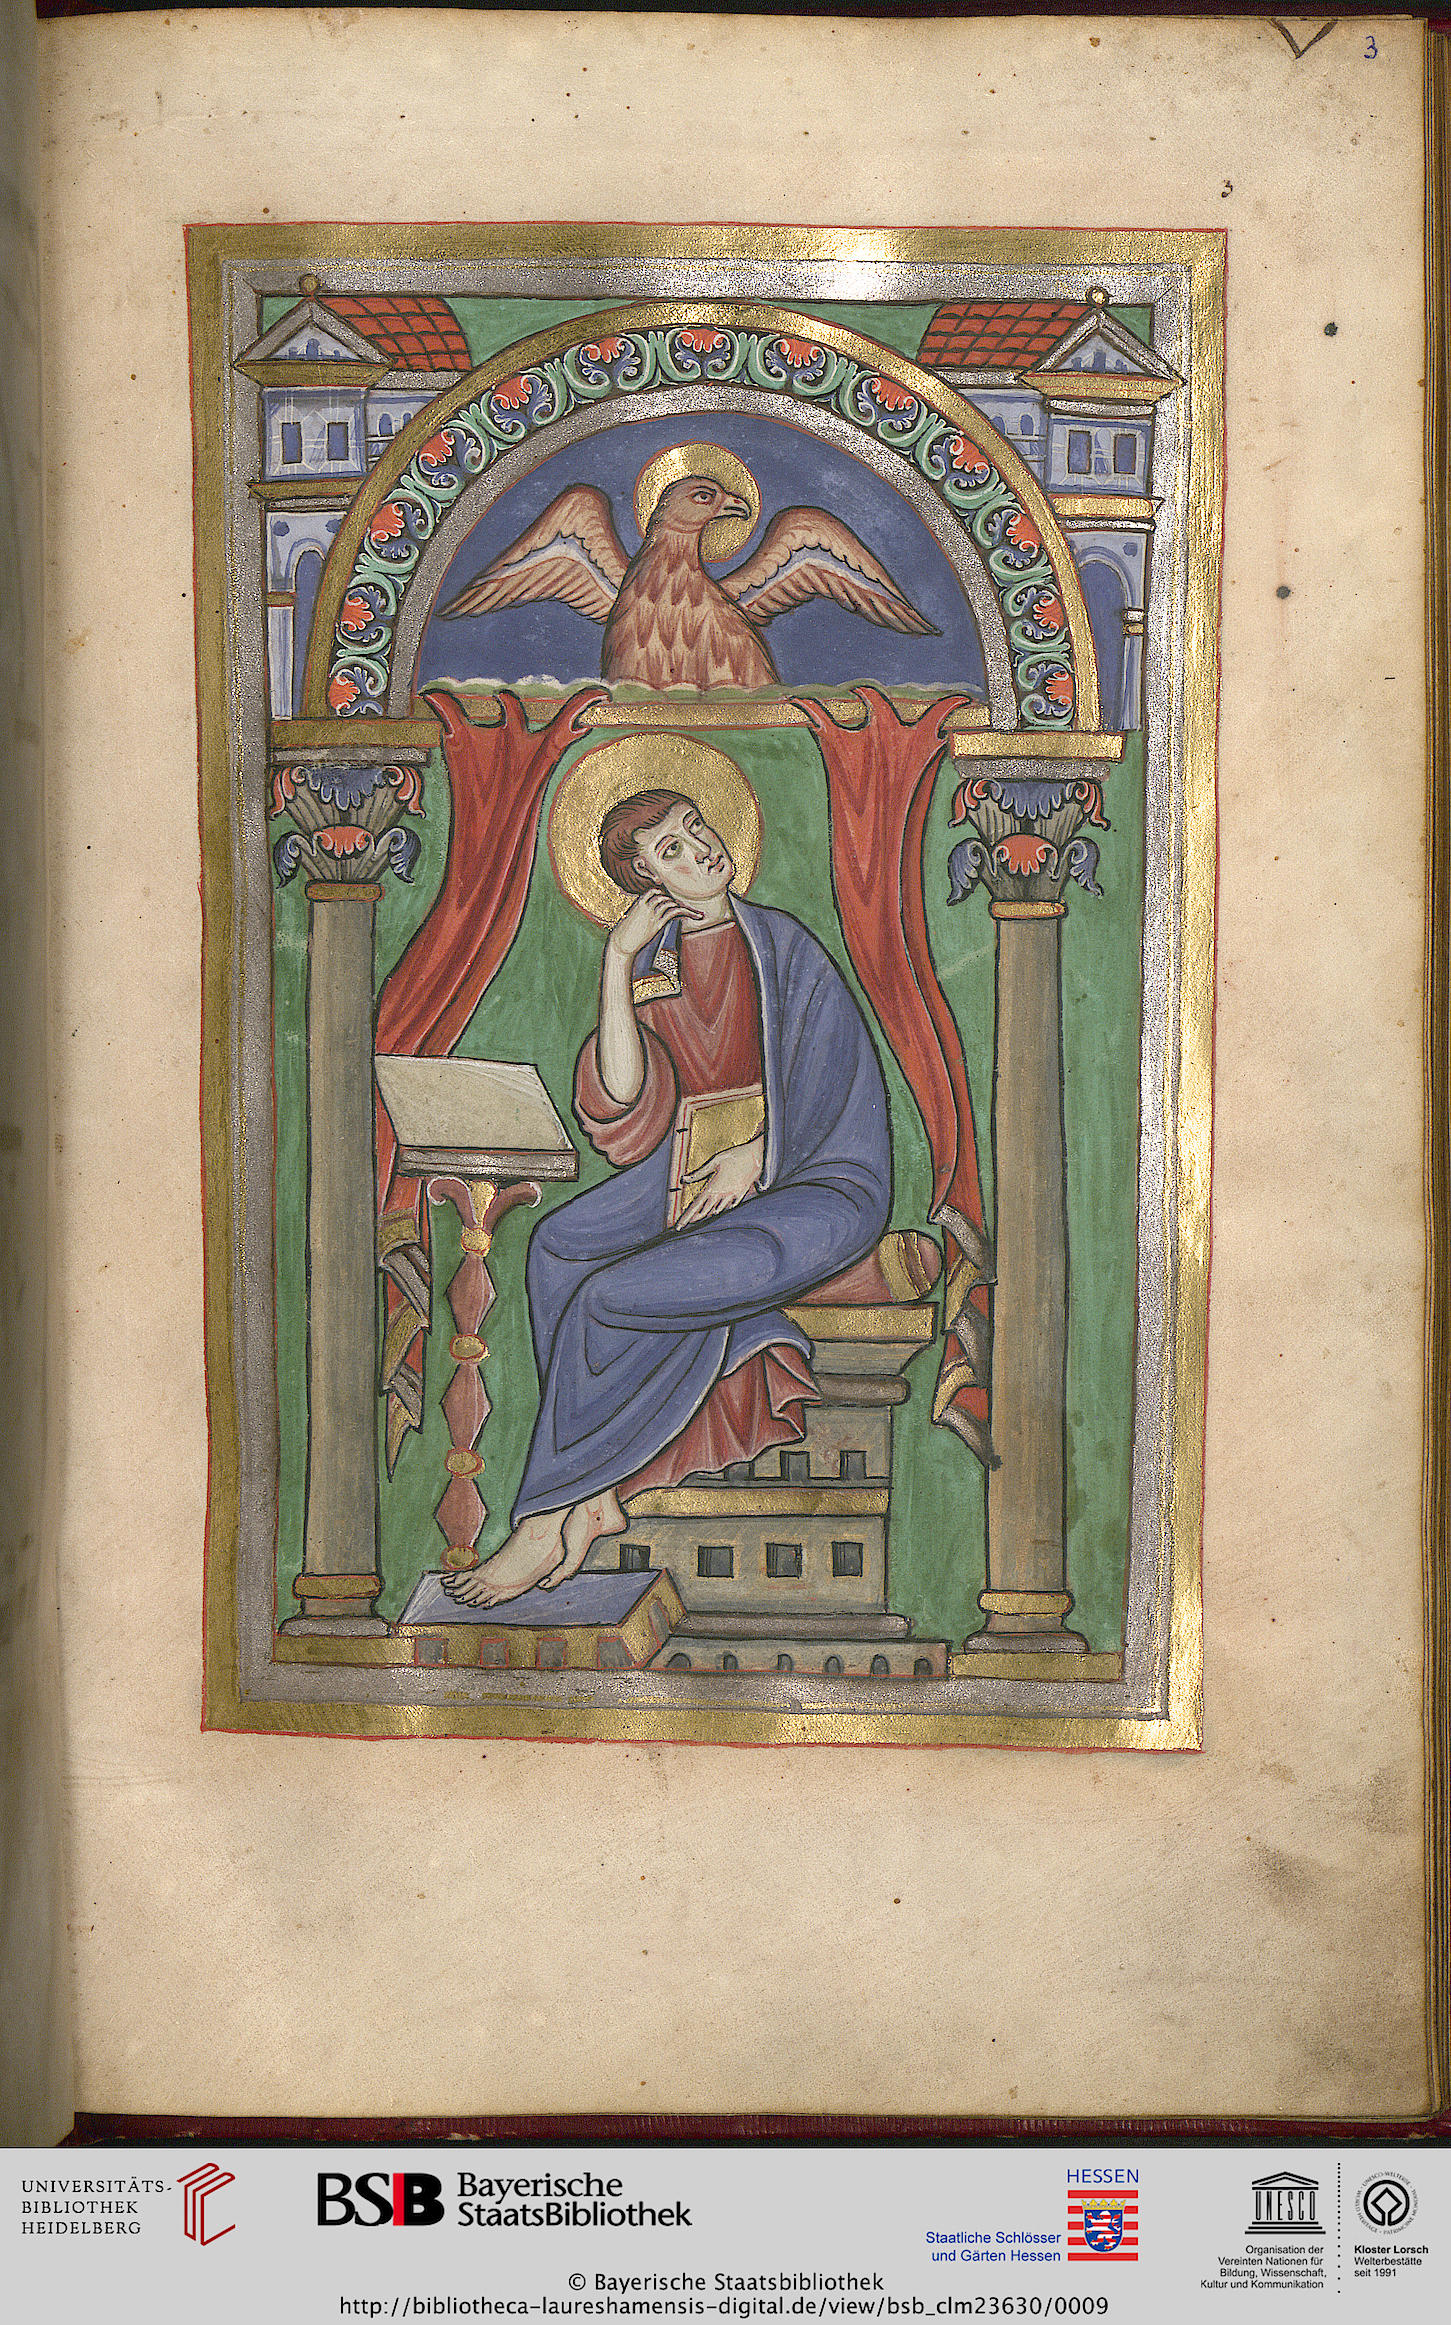 3
3
UNIVERSITÄTS-
BIBLIOTHEK
HEIDELBERG
BSB Bayerische
StaatsBibliothek
HESSEN
Staatliche Schlösser
und Gärten Hessen
UNESCO
Organisation der
Vereinten Nationen für
Bildung, Wissenschaft,
Kultur und Kommunikation
Kloster Lorsch
Welterbestätte
seit 1991
© Bayerische Staatsbibliothek
http://bibliotheca-laureshamensis-digital.de/view/bsb_clm23630/0009